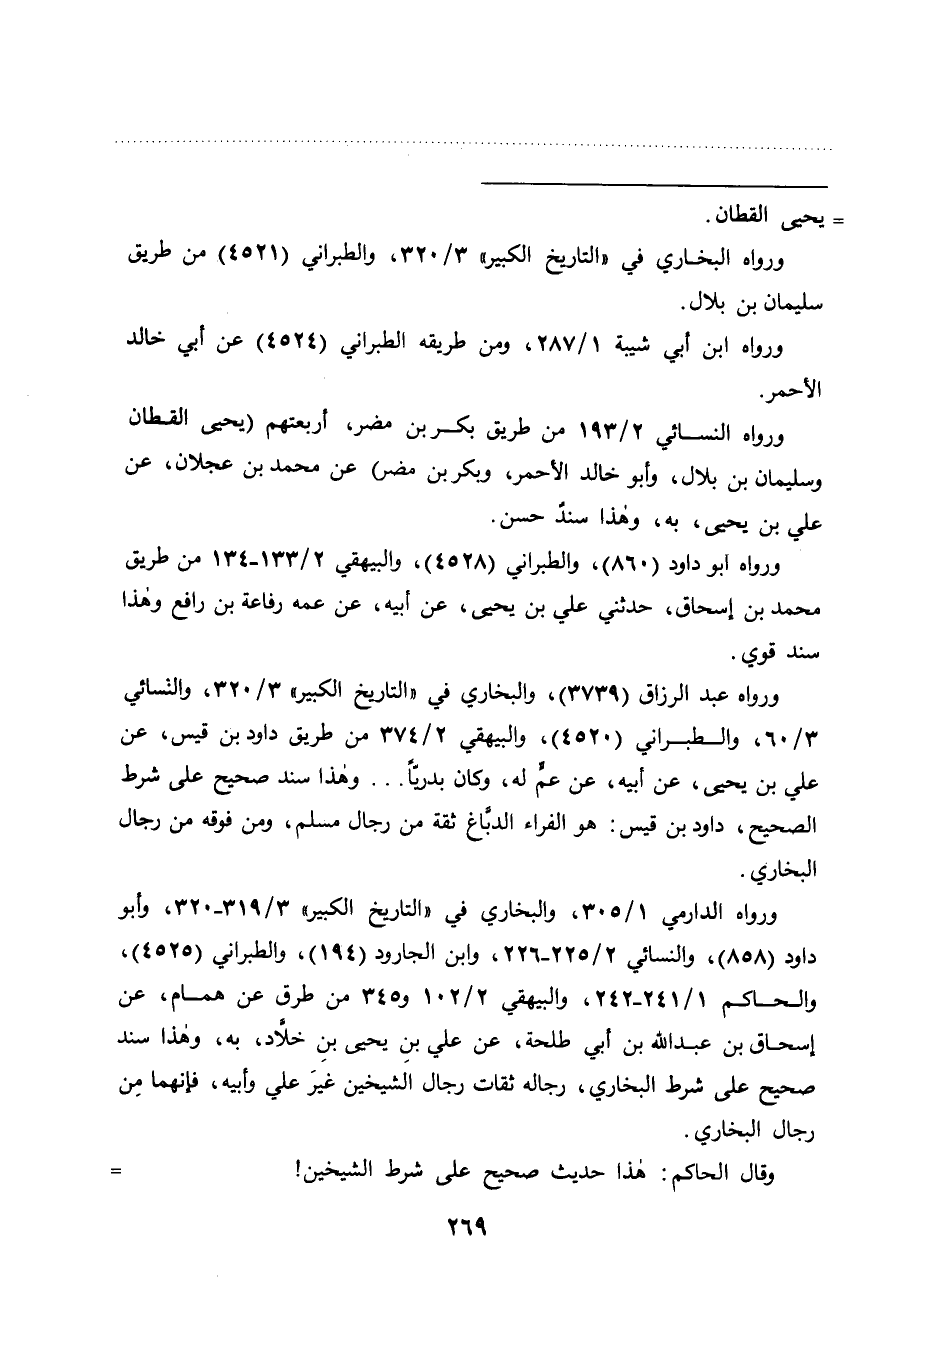 = يحيى القطان.
ورواه البخاري في «التاريخ الكبير» ٣٢٠/٣، والطبراني (٤٥٢١) من طريق
سليمان بن بلال.
ورواه ابن أبي شيبة ٢٨٧/١، ومن طريقه الطبراني (٤٥٢٤) عن أبي خالد
الأحمر.
ورواه النسائي ١٩٣/٢ من طريق بكر بن مضر، أربعتهم (يحيى القطان
وسليمان بن بلال، وأبو خالد الأحمر، وبكر بن مضر) عن محمد بن عجلان، عن
علي بن يحيى، به، وهٰذا سندٌ حسن.
ورواه أبو داود (٨٦٠)، والطبراني (٤٥٢٨)، والبيهقي ١٣٣/٢-١٣٤ من طريق
محمد بن إسحاق، حدثني علي بن يحيى، عن أبيه، عن عمه رفاعة بن رافع وهٰذا
سند قوي.
ورواه عبد الرزاق (٣٧٣٩)، والبخاري في «التاريخ الكبير» ٣٢٠/٣، والنسائي
٦٠/٣، والطبراني (٤٥٢٠)، والبيهقي ٣٧٤/٢ من طريق داود بن قيس، عن
علي بن يحيى، عن أبيه، عن عمٍّ له، وكان بدرياً... وهٰذا سند صحيح على شرط
الصحيح، داود بن قيس: هو الفراء الدبَّاغ ثقة من رجال مسلم، ومن فوقه من رجال
البخاري.
ورواه الدارمي ٣٠٥/١، والبخاري في «التاريخ الكبير» ٣١٩/٣-٣٢٠، وأبو
داود (٨٥٨)، والنسائي ٢٢٥/٢-٢٢٦، وابن الجارود (١٩٤)، والطبراني (٤٥٢٥)،
والحاكم ٢٤١/١-٢٤٢، والبيهقي ١٠٢/٢ و٣٤٥ من طرق عن همام، عن
إسحاق بن عبدالله بن أبي طلحة، عن علي بن يحيى بن خلَّاد، به، وهٰذا سند
صحيح على شرط البخاري، رجاله ثقات رجال الشيخين غيرَ علي وأبيه، فإنهما مِن
رجال البخاري.
وقال الحاكم: هٰذا حديث صحيح على شرط الشيخين! =
٢٦٩